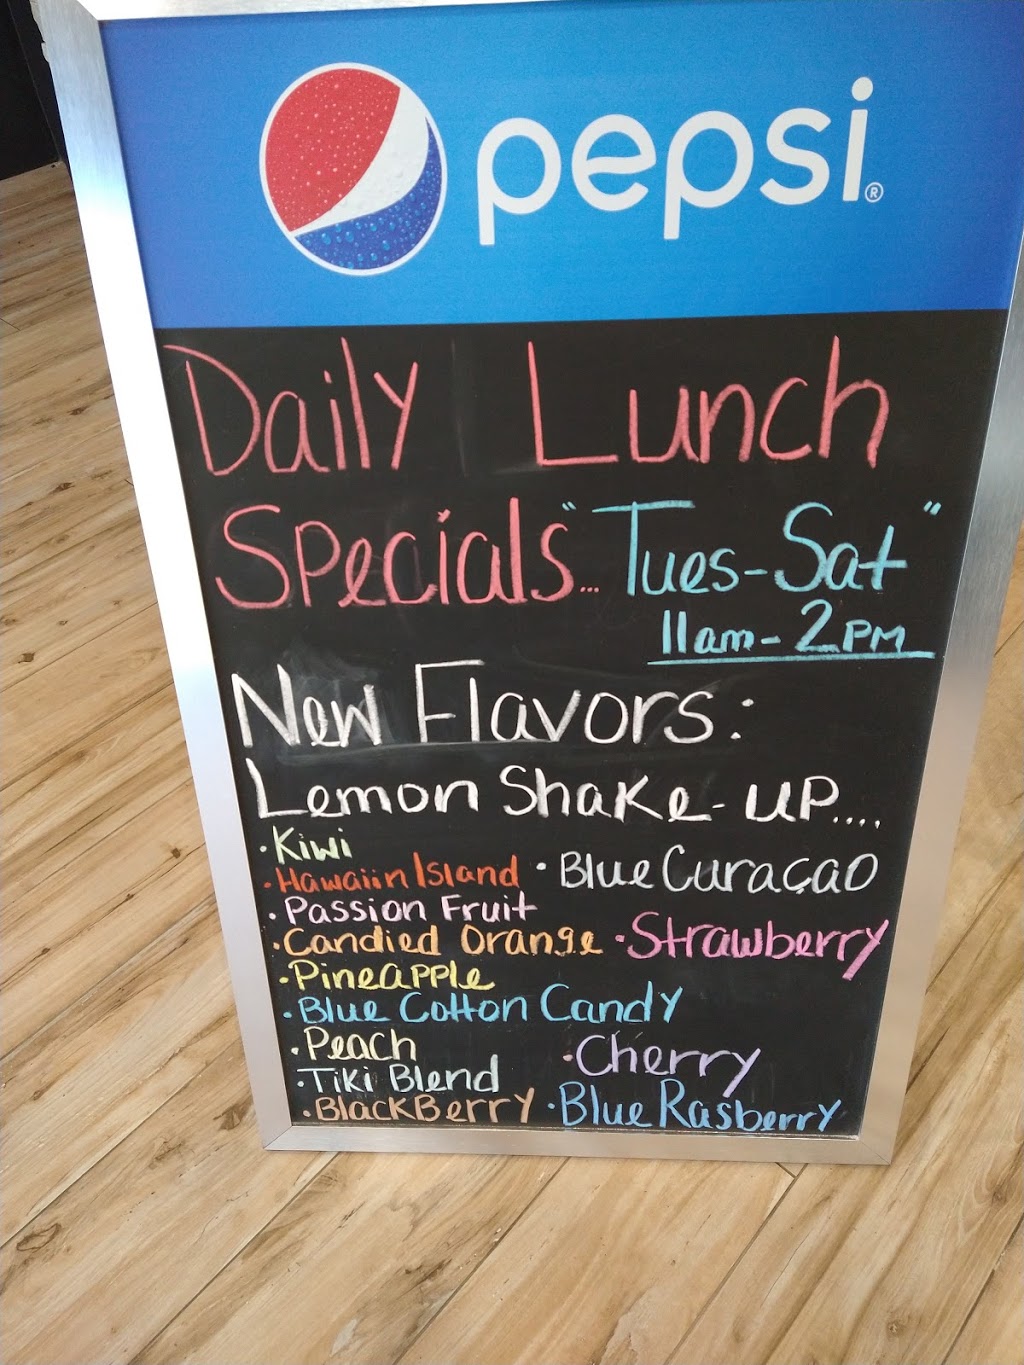 pepsi®
Daily Lunch
Specials... "Tues-Sat"
11am-2PM
New Flavors:
Lemon Shake-UP....
·Kiwi
·Hawaiin Island
·Blue Curaçao
·Passion Fruit
·Candied Orange
·Strawberry
·Pineapple
·Blue Cotton Candy
·Peach
·Cherry
·Tiki Blend
·BlackBerry
·Blue Rasberry